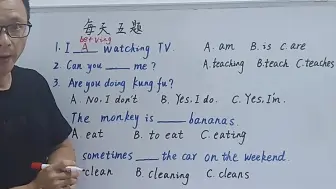 每天五題
be+ving
1. I A watching TV A. am B. is C. are
2. Can you ____ me? A. teaching B. teach C. teaches
3. Are you doing kung fu?
A. No, I don't B. Yes, I do. C. Yes, I'm.
The monkey is ____ bananas.
A. eat B. to eat C. eating
sometimes ____ the car on the weekend.
clean B. cleaning C. cleans